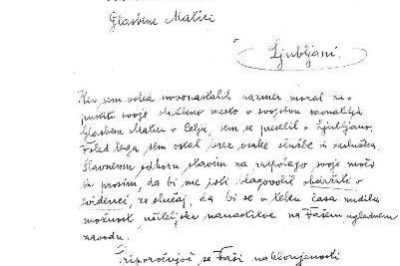 Glasbene Matice
Ljubljani.
Ker sem vsled novonastalih razmer moral za-
pustiti svoje službeno mesto v svojstvu ravnatelja
Glasbene Matice v Celju, sem se preselil v Ljubljano.
Vsled tega sem ostal brez vsake službe in zaslužka.
Slavnemu odboru stavim na razpolago svoje moči
in prosim, da bi me joti blagovolil obdržati v
evidenci, za slučaj, da bi se v teku časa nudila
možnost učiteljske namestitve na Vašem uglednem
zavodu.
Priporočujoč se Vaši naklonjenosti